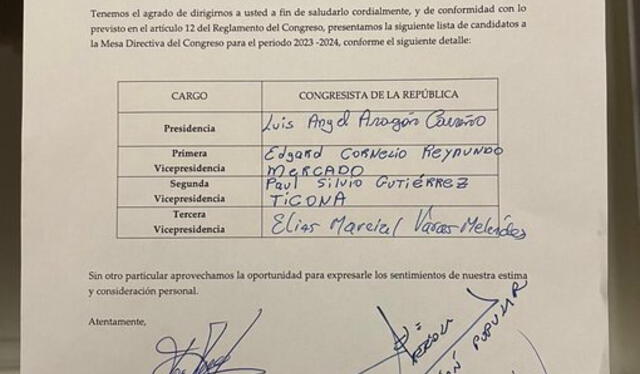 Tenemos el agrado de dirigirnos a usted a fin de saludarlo cordialmente, y de conformidad con lo
previsto en el artículo 12 del Reglamento del Congreso, presentamos la siguiente lista de candidatos a
la Mesa Directiva del Congreso para el periodo 2023 -2024, conforme el siguiente detalle:
CARGO CONGRESISTA DE LA REPÚBLICA
Presidencia Luis Angel Aragón Carreño
Primera Vicepresidencia Edgard CORNELIO REYMUNDO
MERCADO
Segunda Vicepresidencia Paul SILVIO GUTIÉRREZ
TICONA
Tercera Vicepresidencia Elias Marcial Varas Meléndez
Sin otro particular aprovechamos la oportunidad para expresarle los sentimientos de nuestra estima
y consideración personal.
Atentamente,
POPULAR